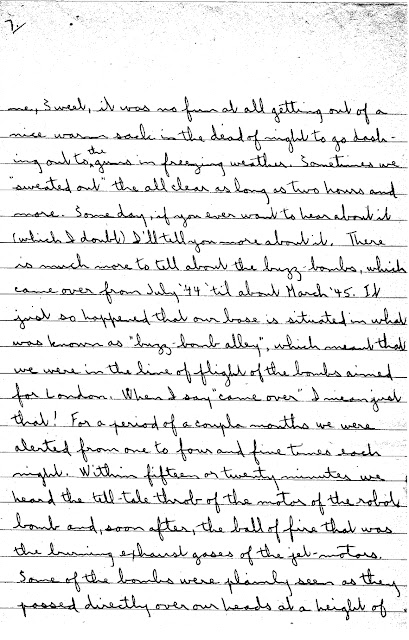 7.
me, Sweet, it was no fun at all getting out of a
nice warm sack in the dead of night to go dash-
ing out to the guns in freezing weather. Sometimes we
"sweated out" the all clear as long as two hours and
more. Some day, if you ever want to hear about it
(which I doubt) I'll tell you more about it. There
is much more to tell about the buzz-bombs, which
came over from July '44 'til about March '45. It
just so happened that our base is situated in what
was known as "buzz-bomb alley", which meant that
we were in the line of flight of the bombs aimed
for London. When I say "came over" I mean just
that! For a period of a coupla months we were
alerted from one to four and five times each
night. Within fifteen or twenty minutes we
heard the tell-tale throb of the motor of the robot
bomb and, soon after, the ball of fire that was
the burning exhaust gases of the jet-motors.
Some of the bombs were plainly seen as they
passed directly over our heads at a height of